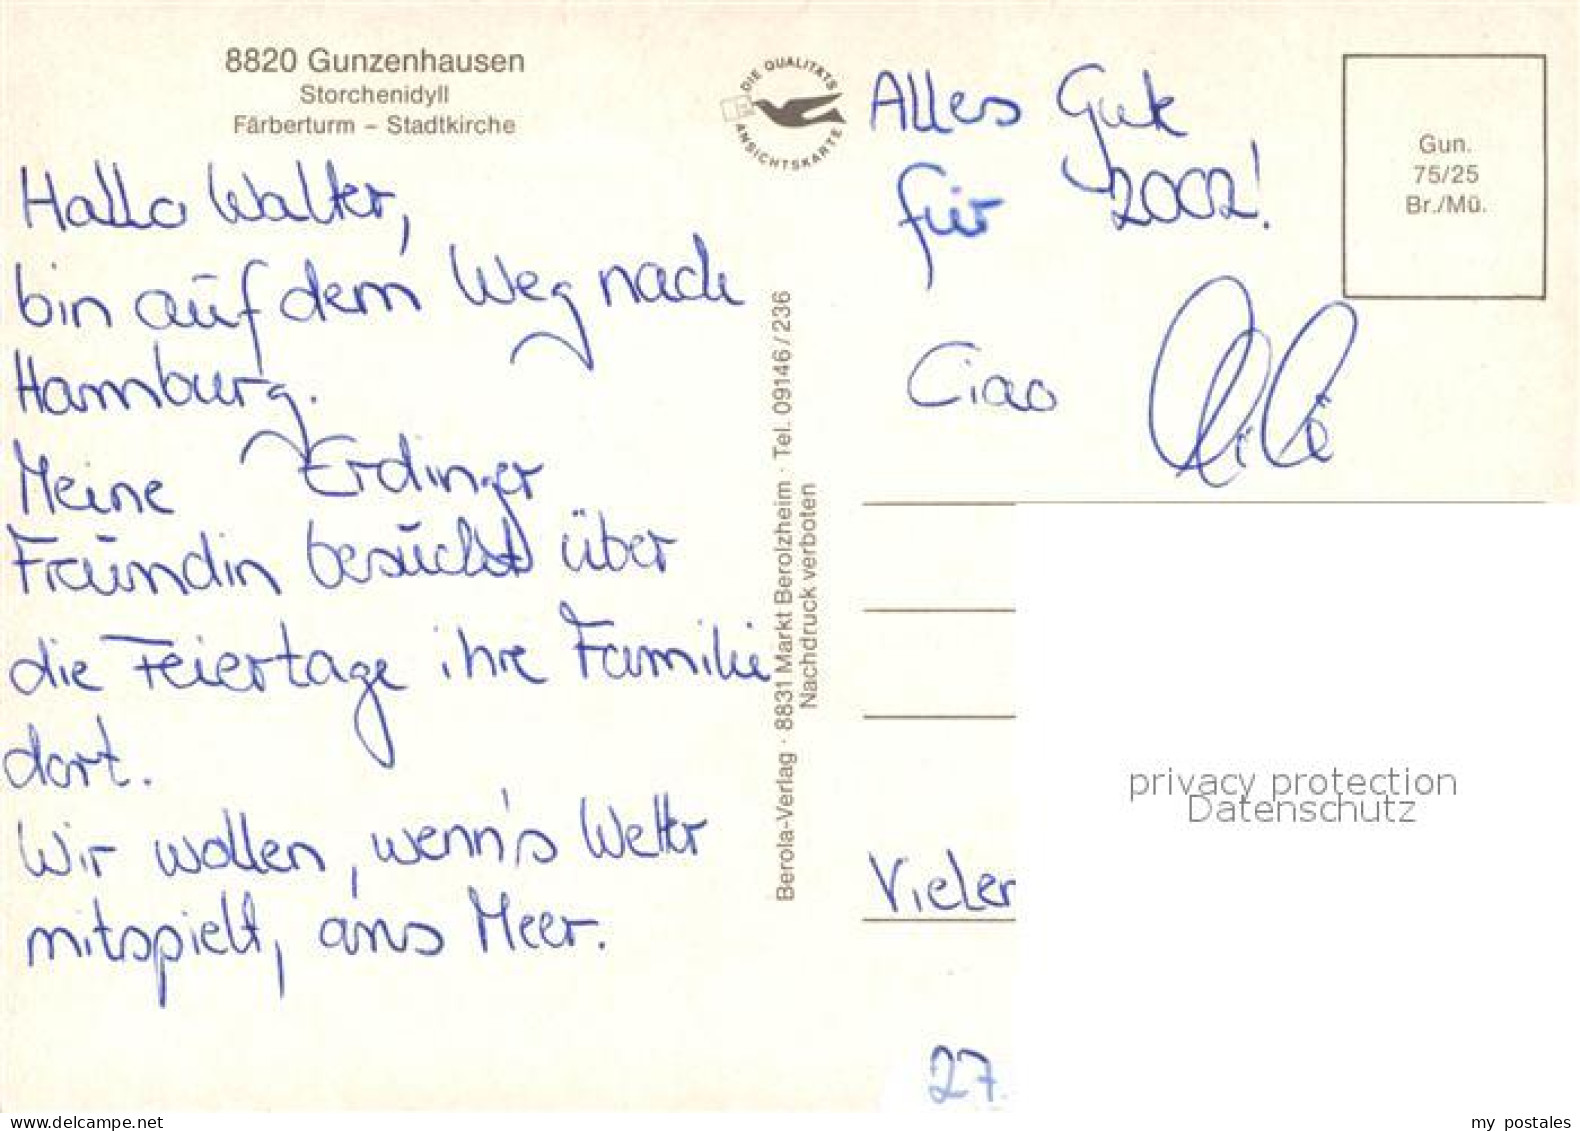 8820 Gunzenhausen
Storchenidyll
Färberturm – Stadtkirche
Hallo Walter,
bin auf dem Weg nach
Hamburg.
Meine Erdinger
Freundin besucht über
die Feiertage ihre Familie
dort.
Wir wollen, wenn's Wetter
mitspielt, ans Meer.
DIE QUALITÄTS
ANSICHTSKARTE
Berola-Verlag · 8831 Markt Berolzheim · Tel. 09146/236
Nachdruck verboten
Alles Gute
für 2002!
Ciao
Gun.
75/25
Br./Mü.
privacy protection
Datenschutz
Vieler
27.
www.delcampe.net
my postales